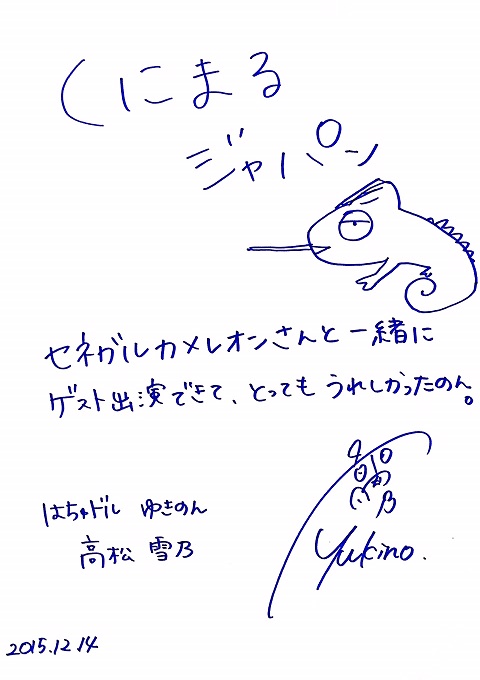 くにまる
ジャパン
セネガルカメレオンさんと一緒に
ゲスト出演できて、とっても うれしかったのん。
はちゅドル ゆきのん
高松 雪乃
Yukino.
2015.12.14